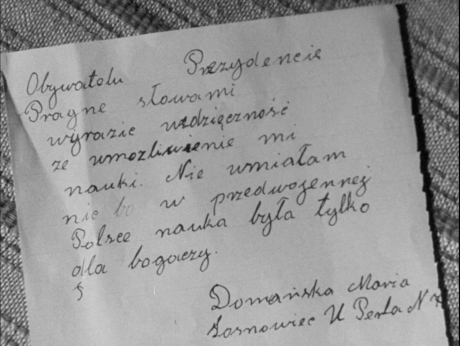 Obywatelu Prezydencie
Pragne słowami
wyrazic wdzięczność
ze umozliwienie mi
nauki. Nie umiałam
nic bo w przedwojennej
Polsce nauka była tylko
dla bogaczy.
Domańska Maria
Sosnowiec U Perla N